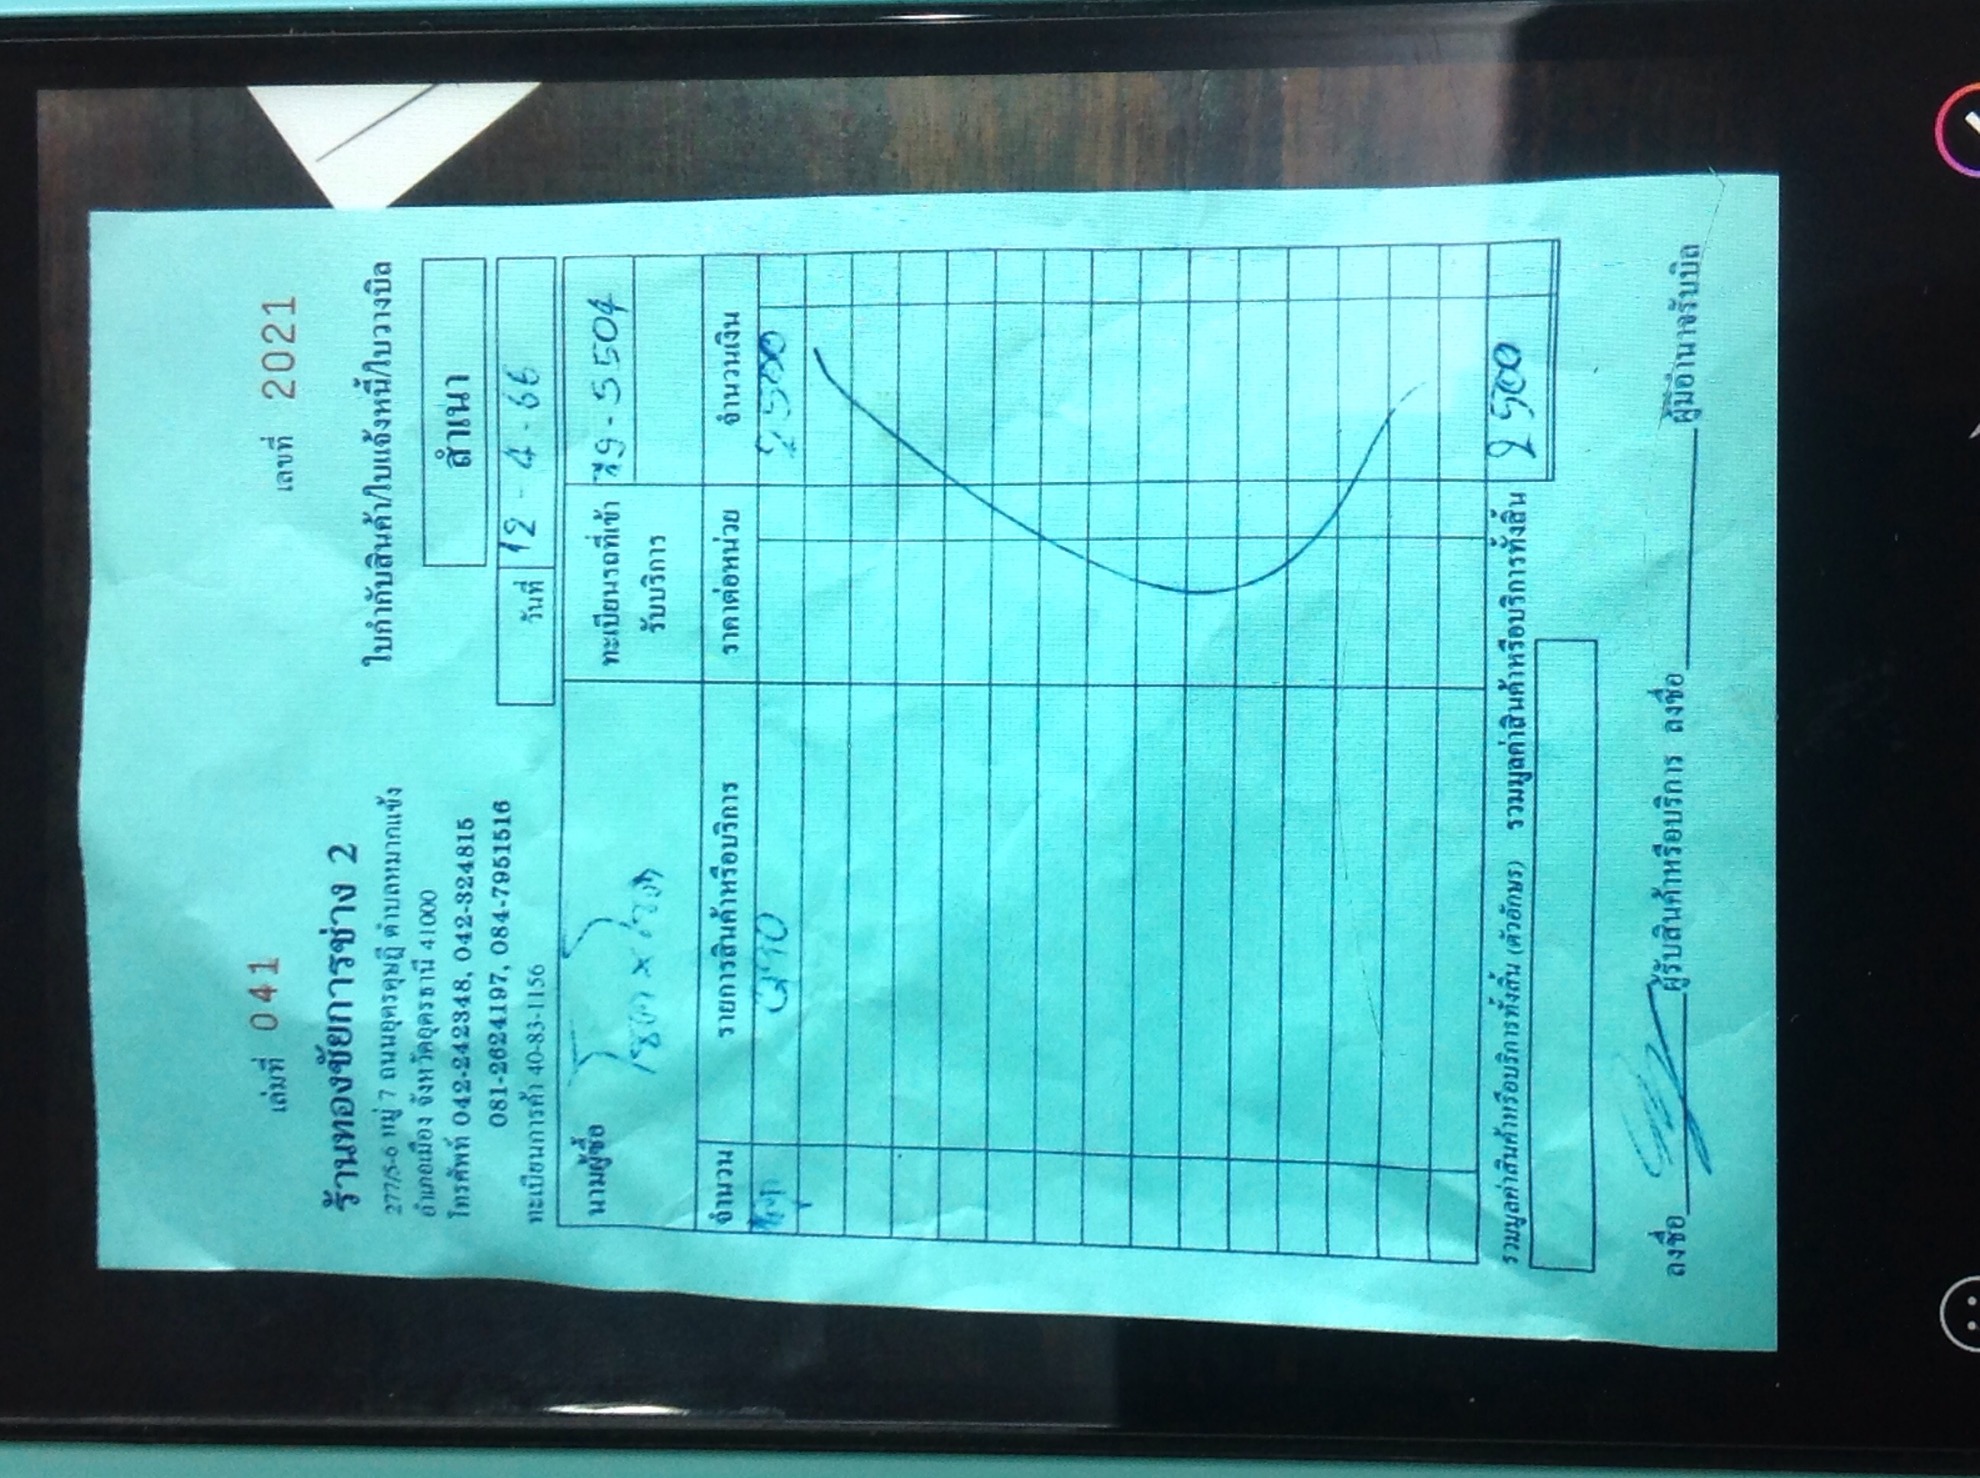 เล่มที่ 041 เลขที่ 2021
ร้านทองชัยการช่าง 2
277/5-6 หมู่ 7 ถนนอุดรดุษฎี ตำบลหมากแข้ง
อำเภอเมือง จังหวัดอุดรธานี 41000
โทรศัพท์ 042-242348, 042-324815
081-2624197, 084-7951516
ทะเบียนการค้า 40-83-1156
ใบกำกับสินค้า/ใบแจ้งหนี้/ใบวางบิล
สำเนา
วันที่ 12-4-66
นามผู้ซื้อ
ทะเบียนรถที่เข้ารับบริการ 79-5504
จำนวน รายการสินค้าหรือบริการ ราคาต่อหน่วย จำนวนเงิน
2500
รวมมูลค่าสินค้าหรือบริการทั้งสิ้น (ตัวอักษร) รวมมูลค่าสินค้าหรือบริการทั้งสิ้น 2500
ลงชื่อ ผู้รับสินค้าหรือบริการ ลงชื่อ ผู้มีอำนาจรับบิล